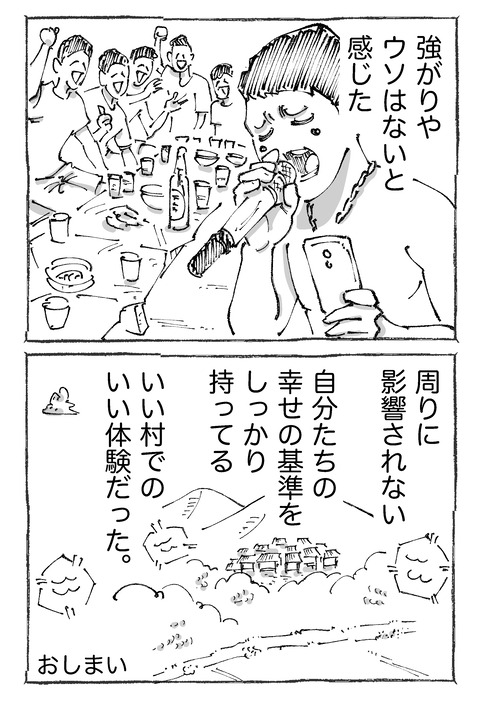 強がりや
ウソはないと
感じた
周りに
影響されない
自分たちの
幸せの基準を
しっかり
持ってる
いい村での
いい体験だった。
おしまい